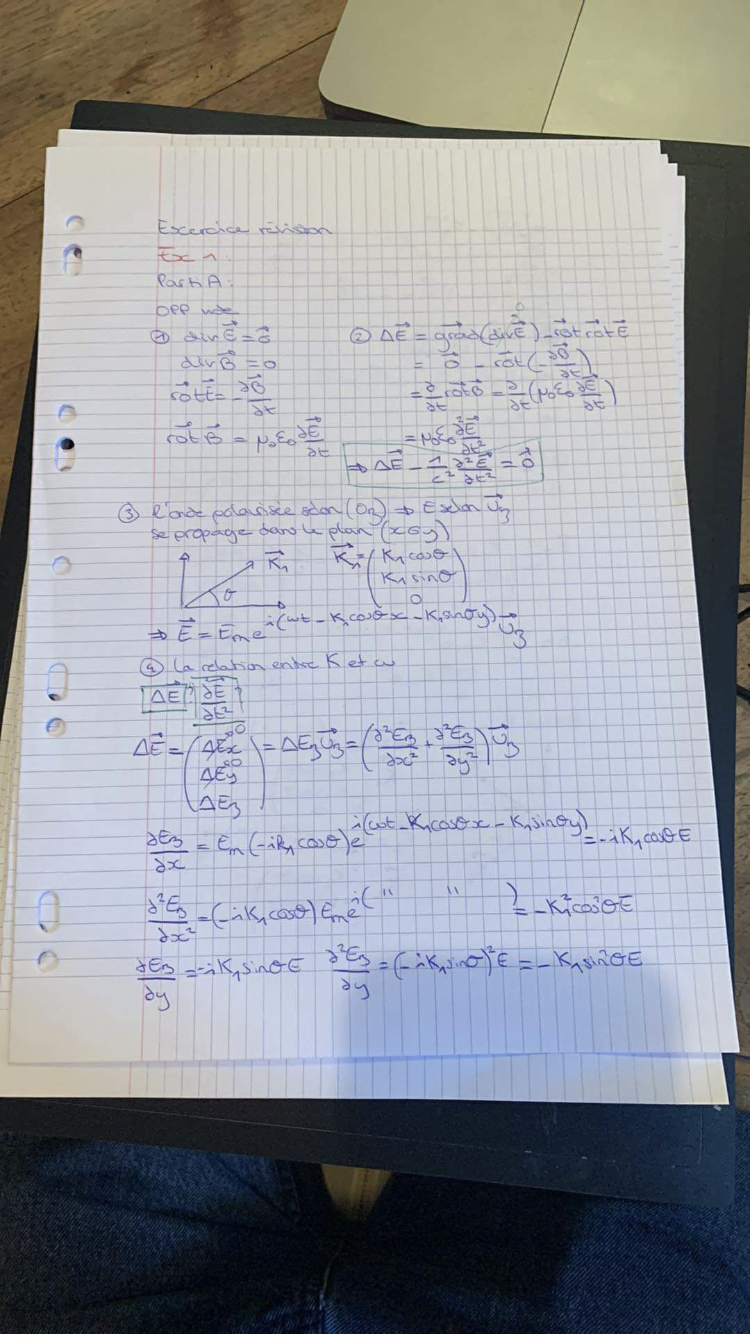 Exercice révision
Ex 1:
Parti A:
OPP
① div E⃗ = 0⃗
div B⃗ = 0
rot⃗ E⃗ = -∂B⃗/∂t
rot⃗ B⃗ = μ₀ε₀ ∂E⃗/∂t
② ΔE⃗ = grad⃗(div E⃗) - rot⃗ rot⃗ E⃗
0
= 0⃗ - rot⃗(-∂B⃗/∂t)
= ∂/∂t rot⃗ B⃗ = ∂/∂t (μ₀ε₀ ∂E⃗/∂t)
= μ₀ε₀ ∂²E⃗/∂t²
⇒ ΔE⃗ - 1/c² ∂²E⃗/∂t² = 0⃗
③ l'onde polarisée selon (Oz) ⇒ E selon U⃗z
se propage dans le plan (xOy)
K⃗₁
θ
K⃗₁ = (K₁cosθ
K₁sinθ
0)
⇒ E⃗ = Em e^i(ωt - K₁cosθx - K₁sinθy) U⃗z
④ La relation entre K et ω
ΔE⃗ , ∂E⃗/∂t²
ΔE⃗ = (ΔEx=0
ΔEy=0
ΔEz) = ΔEz U⃗z = (∂²Ez/∂x² + ∂²Ez/∂y²) U⃗z
∂Ez/∂x = Em(-iK₁cosθ)e^i(ωt - K₁cosθx - K₁sinθy) = -iK₁cosθE
∂²Ez/∂x² = (-iK₁cosθ)Em e^i( " " ) = -K₁²cos²θE
∂Ez/∂y = -iK₁sinθE ∂²Ez/∂y = (-iK₁sinθ)²E = -K₁sin²θE